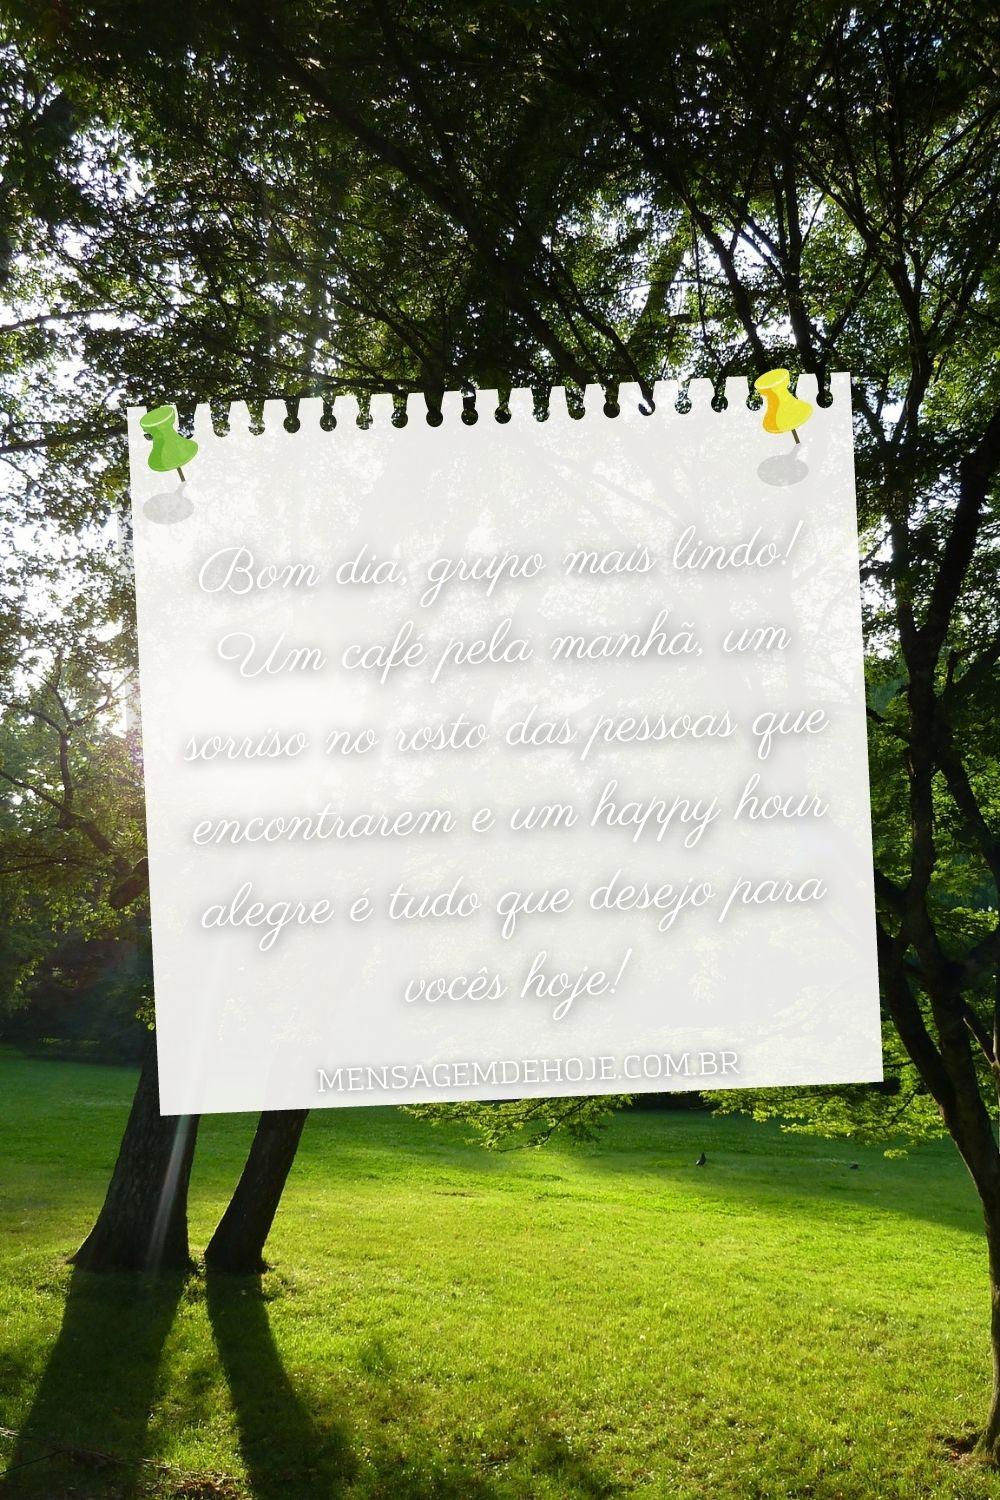 Bom dia, grupo mais lindo!
Um café pela manhã, um
sorriso no rosto das pessoas que
encontrarem e um happy hour
alegre é tudo que desejo para
vocês hoje!
MENSAGEMDEHOJE.COM.BR